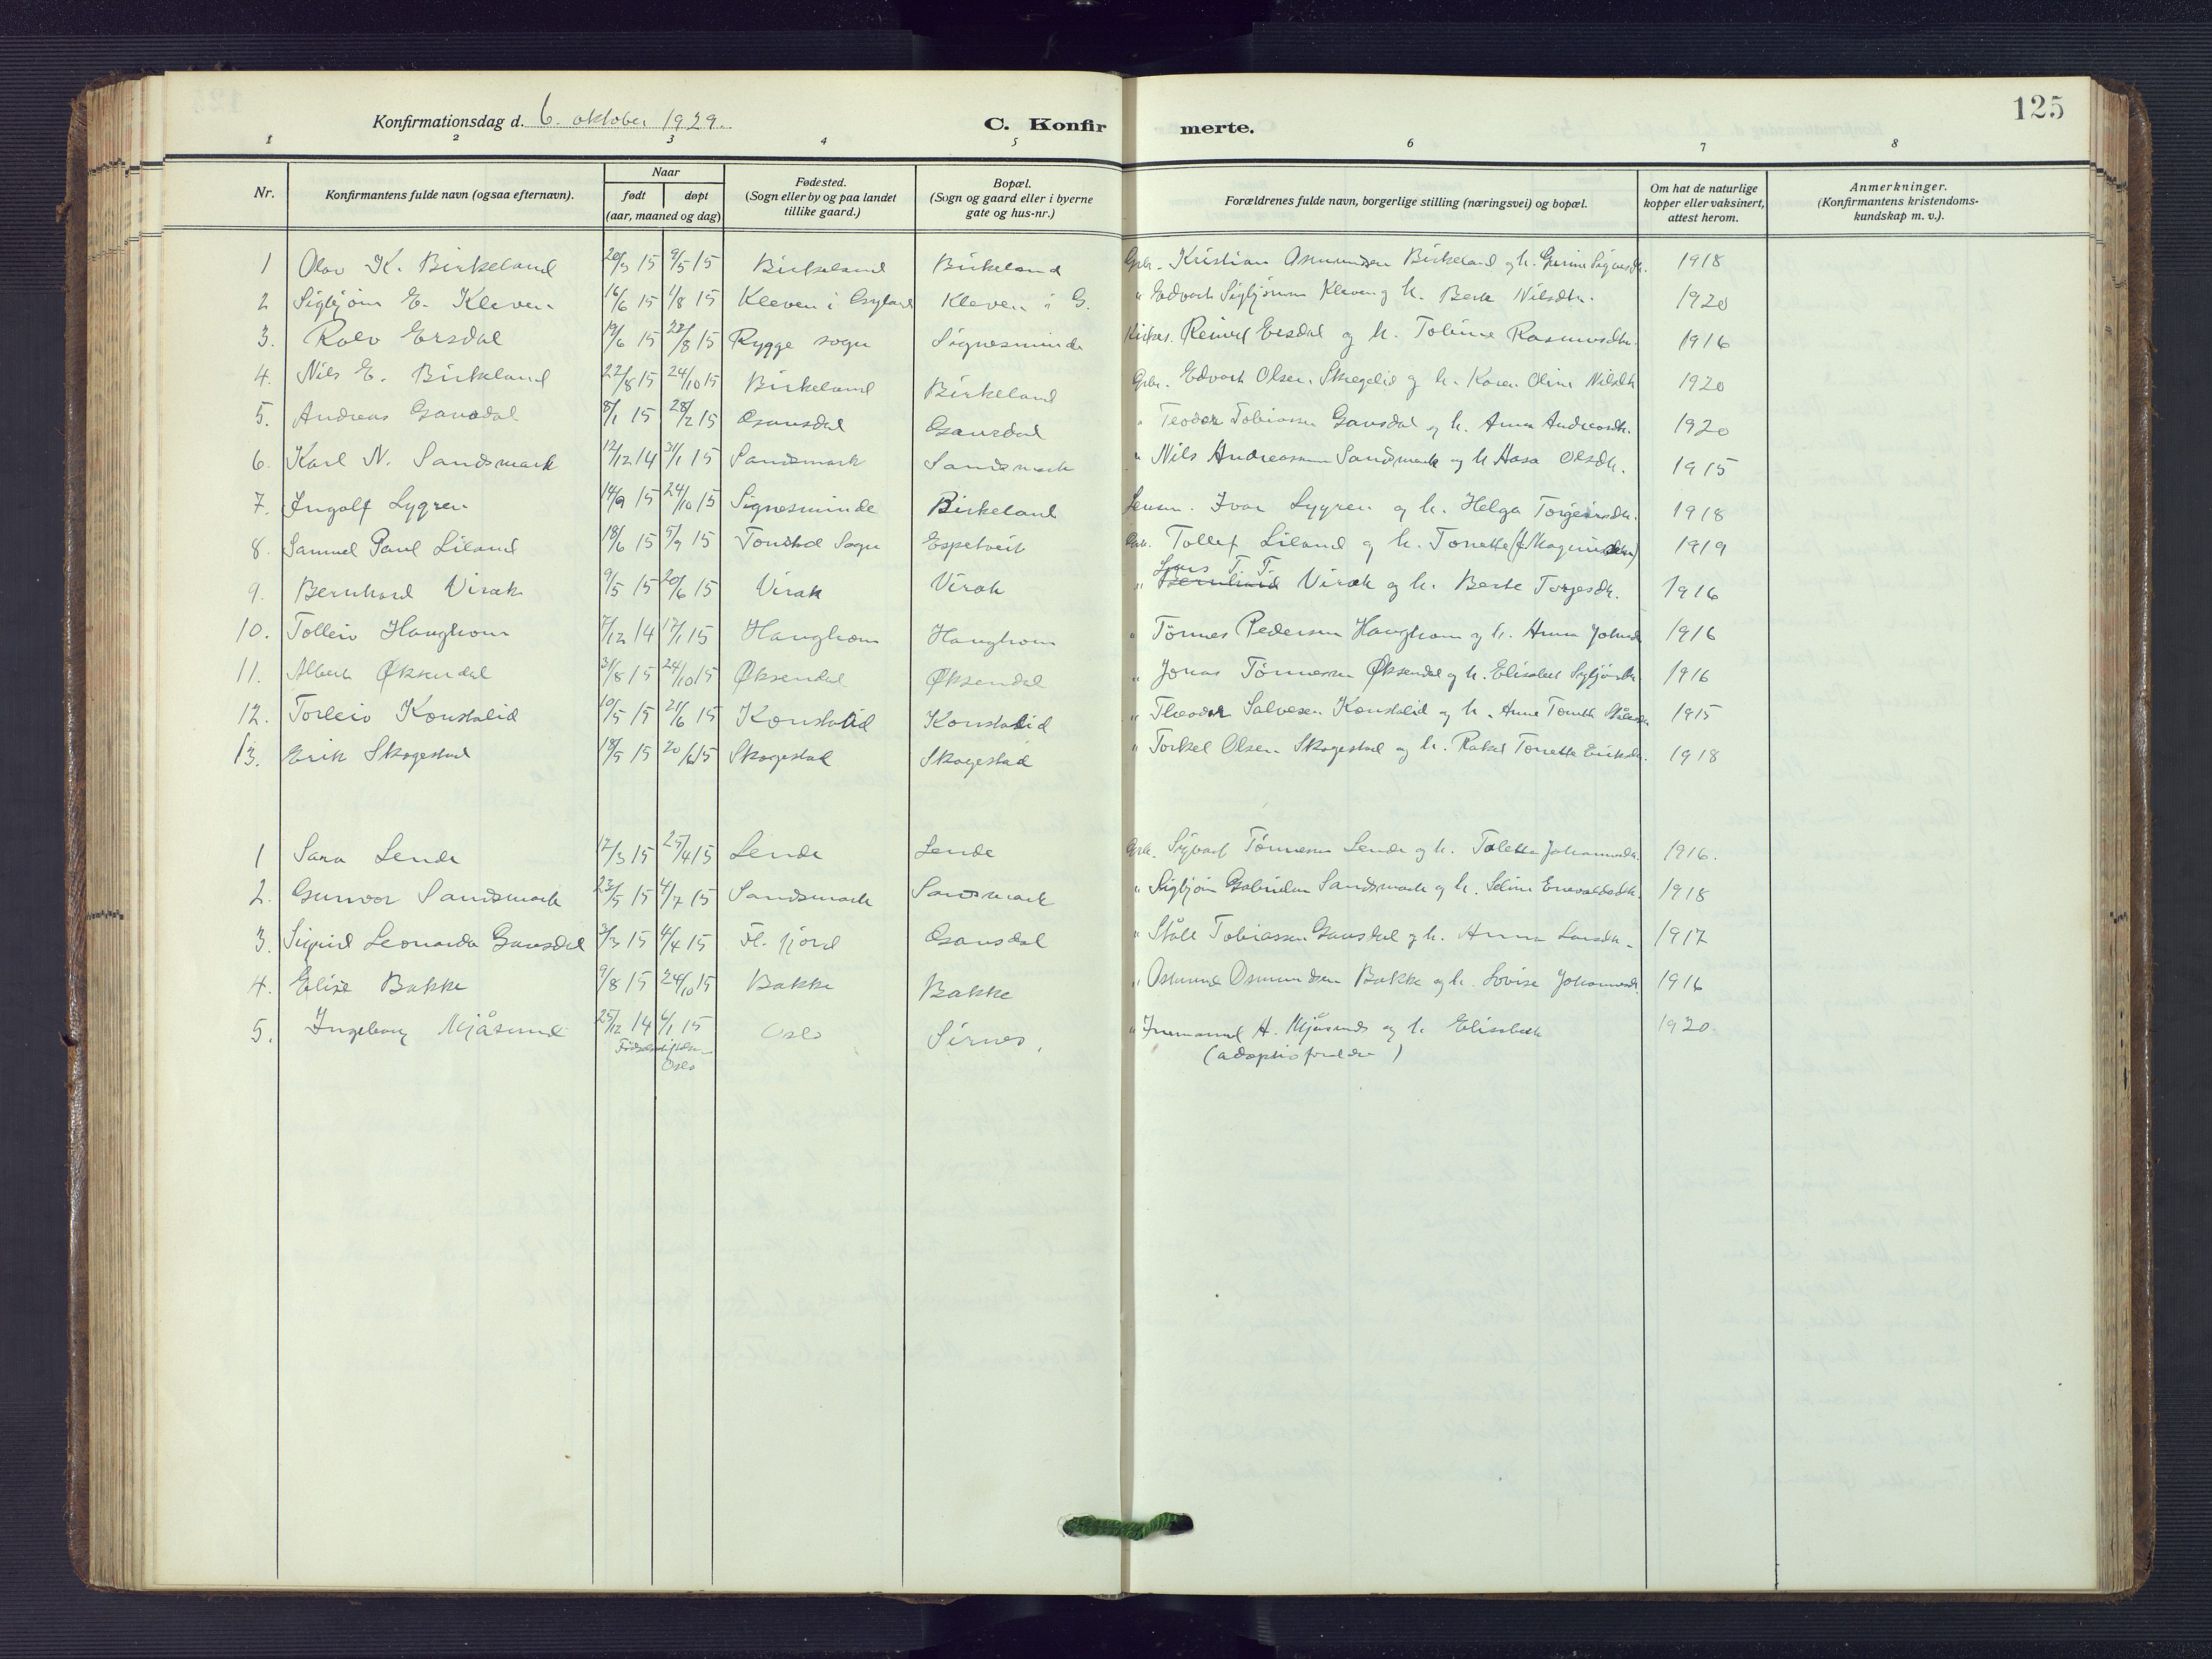 125
Konfirmationsdag d. 6. oktober 1929.
C. Konfirmerte.
1 2 3 4 5 6 7 8
Nr. Konfirmantens fulde navn (ogsaa efternavn). Naar født døpt (aar, maaned og dag) Fødested. (Sogn eller by og paa landet tillike gaard.) Bopæl. (Sogn og gaard eller i byerne gate og hus-nr.) Forældrenes fulde navn, borgerlige stilling (næringsvei) og bopæl. Om hat de naturlige kopper eller vaksinert, attest herom. Anmerkninger. (Konfirmantens kristendomskundskap m. v.).
1 Olav K. Birkeland 20/3 15 9/5 15 Birkeland Birkeland Gbr. Kristian Asmundsen Birkeland og h. 1918
2 Sigbjørn E. Kleven 16/6 15 1/8 15 Kleven i Gyland Kleven i G. " Edvart Sigbjørnsen Kleven og h. Berte Nilsdtr. 1920
3. Rolv Ersdal 19/6 15 22/8 15 Rygge sogn Signesminde Kirkes. Reinert Ersdal og h. Toline Rasmusdtr. 1916
4. Nils E. Birkeland 22/8 15 24/10 15 Birkeland Birkeland Gbr. Edvart Olsen Skregelid og h. Karen Oline Nilsdtr 1920
5. Andreas Gausdal 8/1 15 28/2 15 Gausdal Gausdal " Teodor Tobiassen Gausdal og h. Anna Andreasdtr. 1920
6. Karl N. Sandsmark 12/12 14 31/1 15 Sandsmark Sandsmark " Nils Andreassen Sandsmark og h. Aasa Olsdtr. 1915
7. Ingolf Lygren 14/9 15 24/10 15 Signesminde Birkeland Lensm. Ivar Lygren og h. Helga Torgeirsdtr. 1918
8. Samuel Paul Liland 18/6 15 5/9 15 Tonstad Sogn Espetveit Gbr. Tollef Liland og h. Tonette 1919
9. Bernhard Virak 9/5 15 20/6 15 Virak Virak " Lars T. T. Bernhard Virak og h. Berte Torgesdtr. 1916
10. Tolleiv Haughom 7/12 14 17/1 15 Haughom Haughom " Tønnes Pedersen Haughom og h. Anna 1916
11. Albert Øksendal 31/8 15 24/10 15 Øksendal Øksendal " Jonas Tønnessen Øksendal og h. Elisabet 1916
12. Torleiv Konstalid 10/5 15 21/6 15 Konstalid Konstalid " Theodor Salvesen Konstalid og h. Anne 1915
13. Erik Skogestad 18/5 15 20/6 15 Skogestad Skogestad " Torkel Olsen Skogestad og h. Rakel Tonette Eriksdtr. 1918
1 Sara Lende 12/3 15 25/4 15 Lende Lende Gbr. Sigvart Tønnesen Lende og h. Taletta Johannesdtr. 1916.
2. Gunvor Sandsmark 23/5 15 4/7 15 Sandsmark Sandsmark " Sigbjørn Gabrielsen Sandsmark og h. Seline Enevaldsdtr. 1918
3. Sigrid Leonarda Gausdal 3/3 15 4/4 15 Fl. fjord Gausdal " Ståle Tobiassen Gausdal og h. Anna Larsdtr. 1917
4. Elise Bakke 9/8 15 24/10 15 Bakke Bakke " Osmund Osmundsen Bakke og h. Lovise Johannesdtr. 1916
5. Ingeborg Mjåsund 25/12 14 6/1 15 Oslo Sirnes. " h. Elisabeth 1920
Fødselsstiftelsen Oslo (adoptivforeldre)